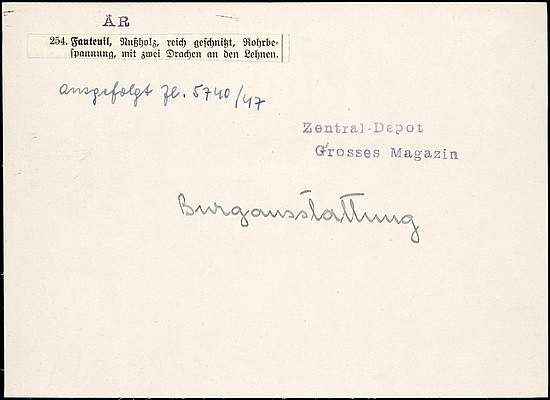 AR
254. Fauteuil, Nußholz, reich geschnitzt, Rohrbe-
spannung, mit zwei Drachen an den Lehnen.
ausgefolgt Zl. 5740/47
Zentral-Depot
Grosses Magazin
Burgausstattung